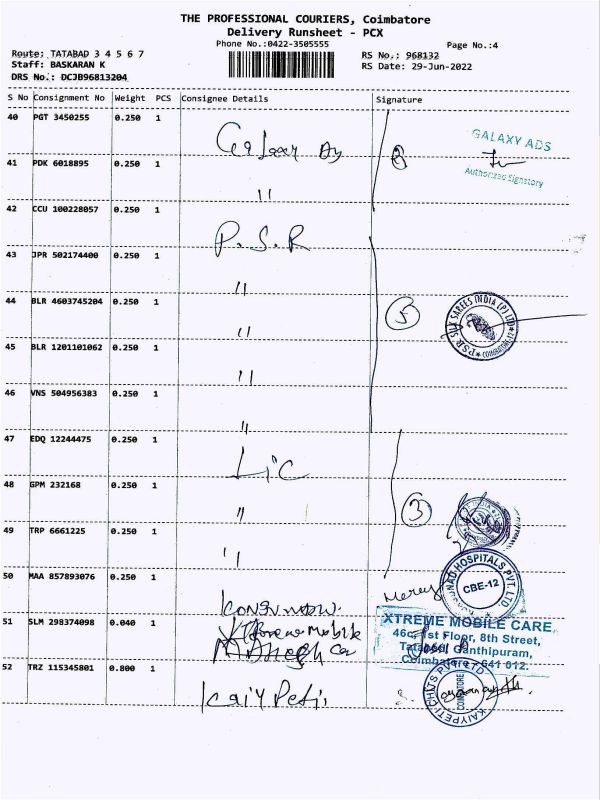 THE PROFESSIONAL COURIERS, Coimbatore
Delivery Runsheet - PCX
Phone No.:0422-3505555
Page No.:4
Route: TATABAD 3 4 5 6 7
RS No.: 968132
Staff: BASKARAN K
RS Date: 29-Jun-2022
DRS No.: DCJB96813204
S No Consignment No Weight PCS Consignee Details Signature
40 PGT 3450255 0.250 1
GALAXY ADS
Authorized Signatory
41 PDK 6018895 0.250 1
"
42 CCU 100228057 0.250 1 P.S.R
43 JPR 502174400 0.250 1
"
44 BLR 4603745204 0.250 1 5 P.S.R SILK SAREES INDIA (P) LTD COIMBATORE-12
"
45 BLR 1201101062 0.250 1
"
46 VNS 504956383 0.250 1
"
47 EDQ 12244475 0.250 1 LiC
48 GPM 232168 0.250 1 3
"
49 TRP 6661225 0.250 1
"
50 MAA 857893076 0.250 1
HOSPITALS PVT. LTD.
CBE-12
51 SLM 298374098 0.040 1 Mobile
XTREME MOBILE CARE
1st Floor, 8th Street,
Gandhipuram,
Coimbatore - 641 012.
52 TRZ 115345801 0.800 1 KaiyPeti
KAIYPETI CHITS PVT LTD COIMBATORE